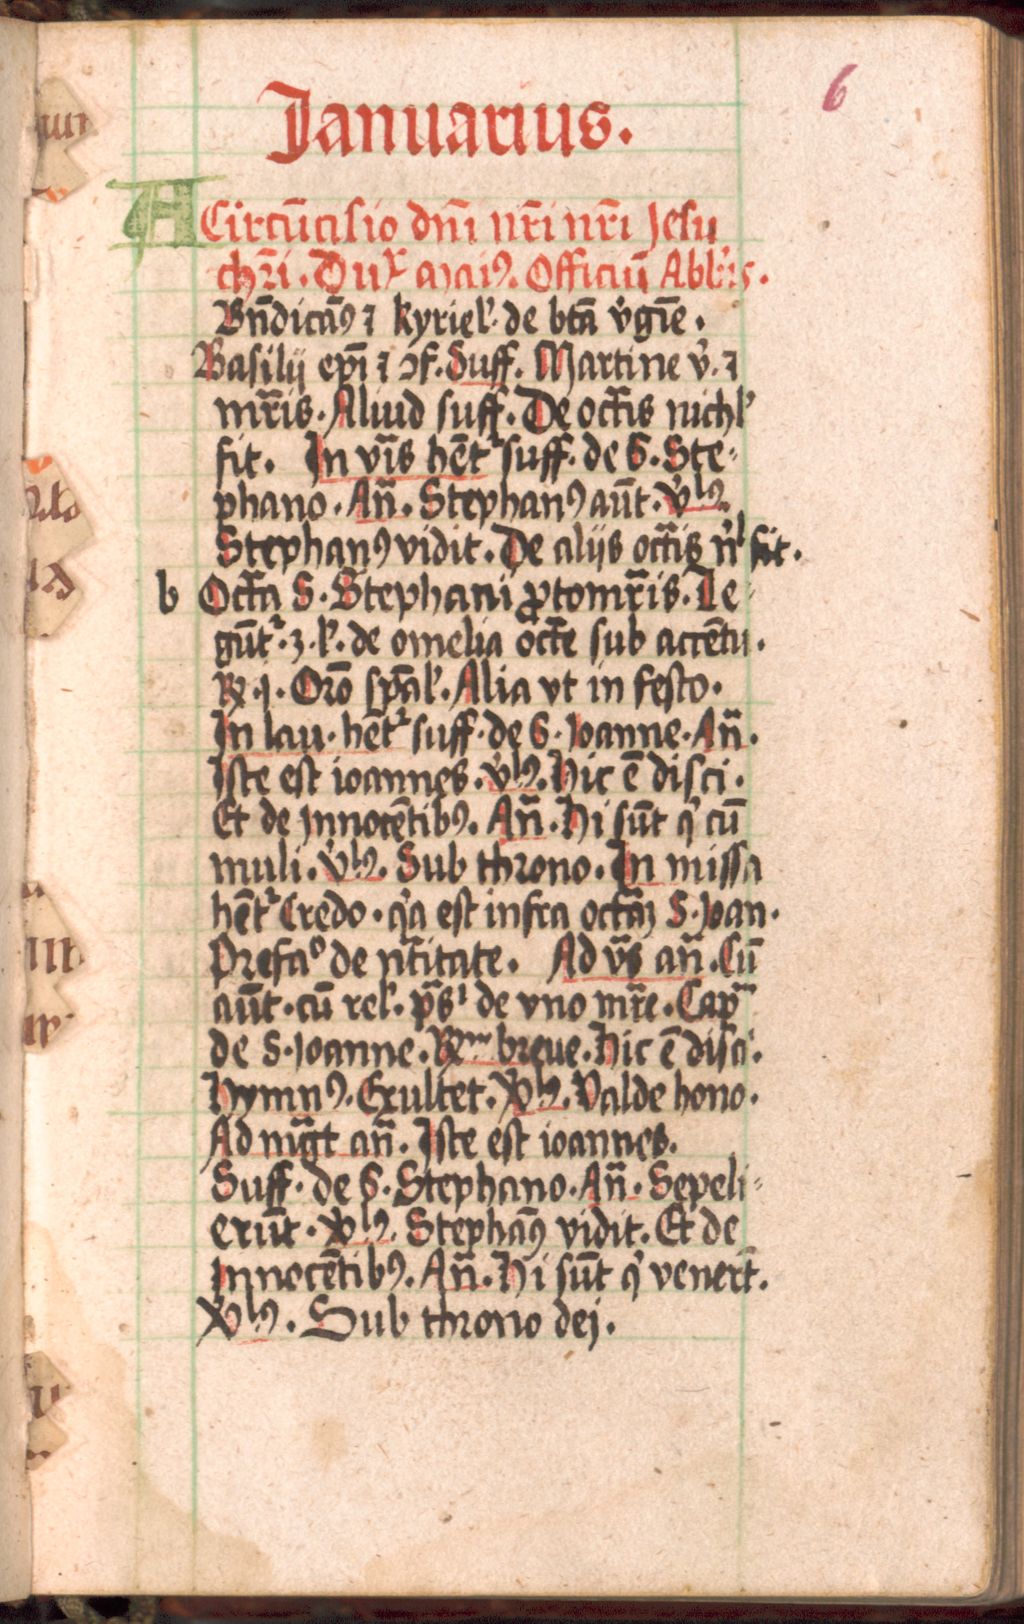 6
Januarius.
A Circu̅cisio dn̅i nr̅i nr̅i Jesu
chr̅i. Duꝰ maiꝰ. Officiu̅ Abb̕is.
Bn̅dicāꝰ ⁊ kyriel̕ de btā v̕gi̅e.
Basilij ep̅i ⁊ ɔf. Suff. Martine v̕. ⁊
mr̅is. Aliud suff. De octīs nichl̕
fit. In vi̅s he̅tᷣ suff. de S. Ste-
phano. An̅. Stephanꝰ au̅t. v̕lꝰ.
Stephanꝰ vidit. De alijs octīs n̕l fit.
b Octā S. Stephani ꝓtomr̅is. Le-
gu̅tᷣ. 3. l̕. de omelia octe̅ sub acce̅tu.
R̕. j. Oro̅ sp̅al̕. Alia vt in festo.
In lau. he̅tᷣ suff. de S. Joanne. An̅.
Iste est ioannes. v̕lꝰ. Hic e̅ disci.
Et de Innoce̅tibꝰ. An̅. Hi su̅t q̕ cu̅
muli. v̕lꝰ. Sub throno. In missa
he̅tᷣ Credo. q̕a est infra octāꝫ S. Joan.
Prefaᵒ de nt̅itate. Ad v̅s an̅. Cu̅
au̅t. cu̅ rel̕. p̅s̕ de vno mr̅e. Cap̅
de S. Joanne. R̕ᵐ breue. Hic e̅ disci.
Hymnꝰ. Exultet. V̕lꝰ. Valde hono.
Ad mg̅t an̅. Iste est ioannes.
Suff. de S. Stephano. An̅. Sepeli-
eru̅t. V̕lꝰ. Stephāꝰ vidit. Et de
Innoce̅tibꝰ. An̅. Hi su̅t q̕ venert̅.
V̕lꝰ. Sub throno dej.